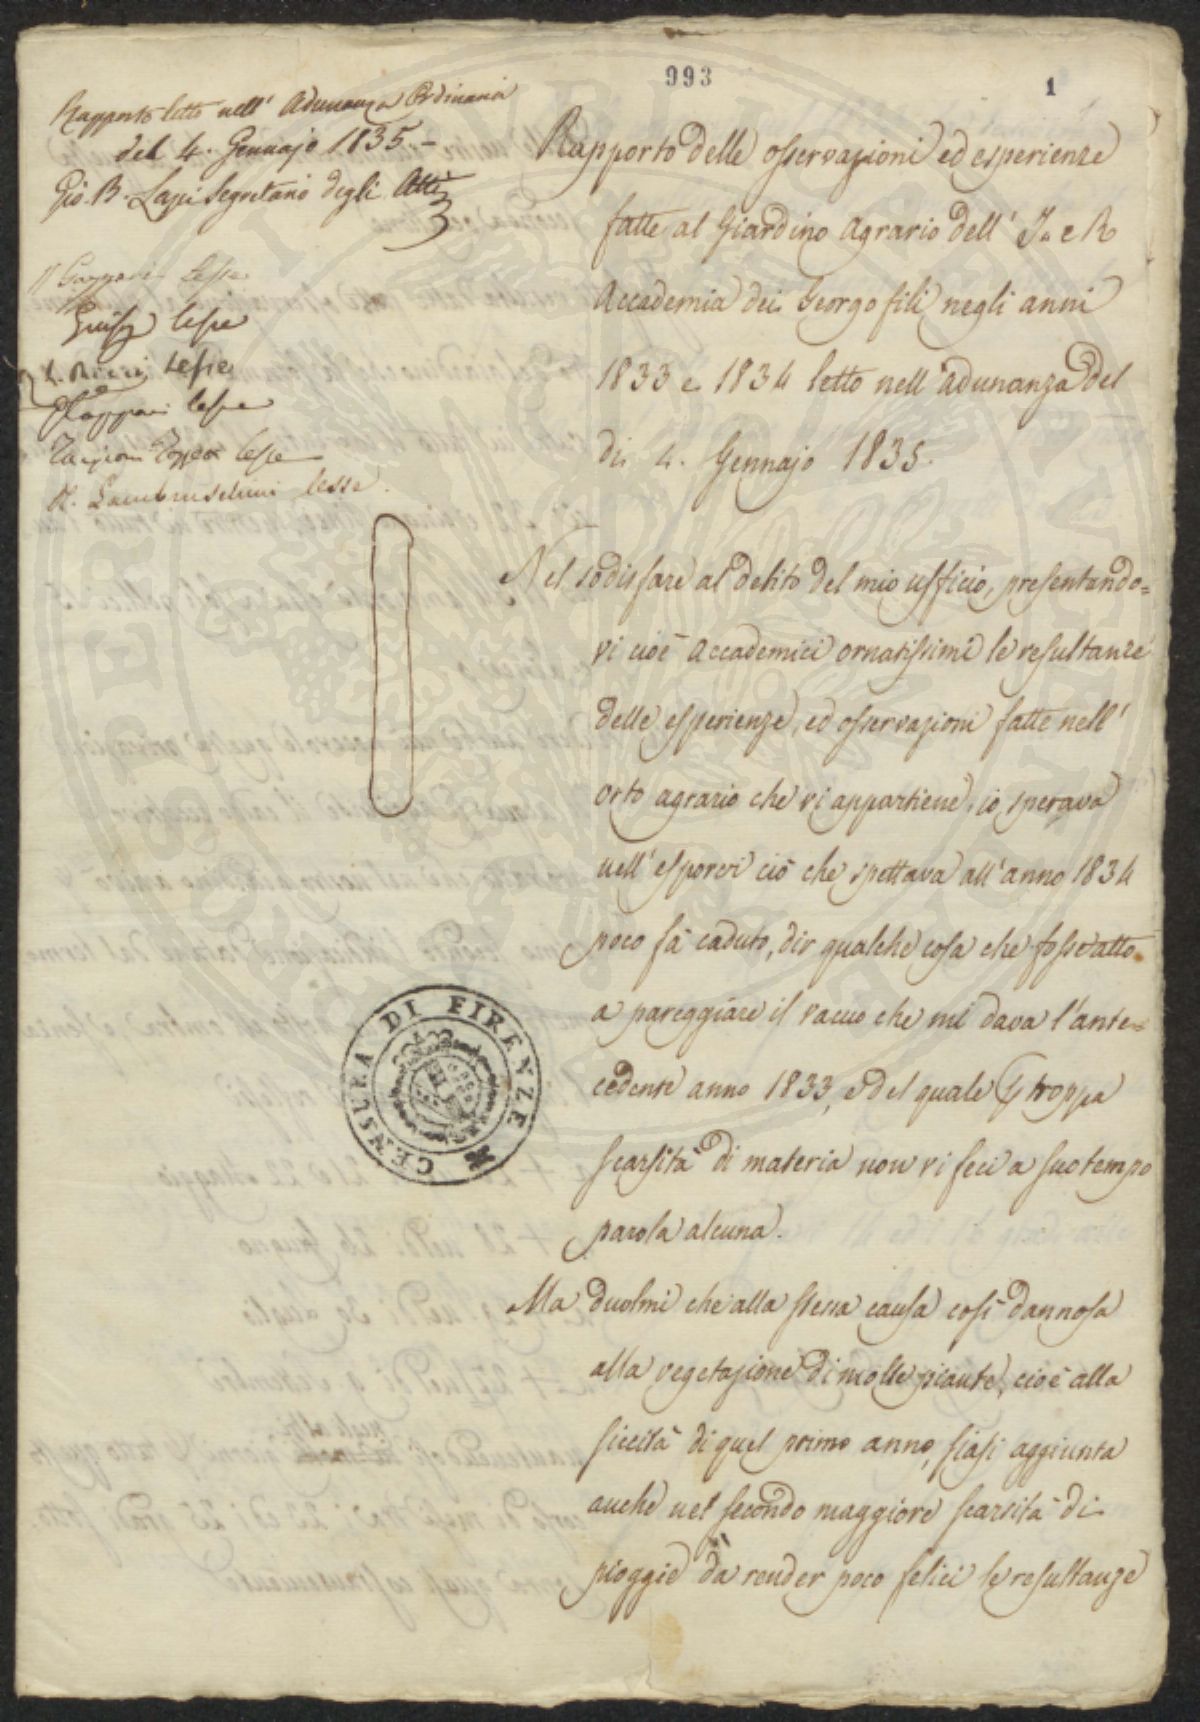 993
1
Rapporto letto nell' Adunanza Ordinaria
del 4. Gennajo 1835 -
Gio. B. Lapi Segretario degli Atti
Gazzeri lesse
lesse
L. Ricci lesse
lesse
Targioni Tozzetti lesse
R. Lambruschini lesse.
Rapporto delle osservazioni ed esperienze
fatte al Giardino Agrario dell' I. e R
Accademia dei Georgofili negli anni
1833 e 1834 letto nell' adunanza del
dì 4. Gennajo 1835.
Nel sodisfare al debito del mio ufficio, presentando=
vi cioè Accademici ornatissimi le resultanze
delle esperienze, ed osservazioni fatte nell'
orto agrario che vi appartiene, io sperava
nell' esporvi ciò che spettava all' anno 1834
poco fà caduto, dir qualche cosa che fosse atto
a pareggiare il vacuo che mi dava l'ante=
cedente anno 1833, e del quale p troppa
scarsità di materia non vi feci a suo tempo
parola alcuna.
Ma duolmi che alla stessa causa così dannosa
alla vegetazione di molte piante, cioè alla
siccità di quel primo anno, siasi aggiunta
anche nel secondo maggiore scarsità di
pioggie da render poco felici le resultanze
CENSURA DI FIRENZE